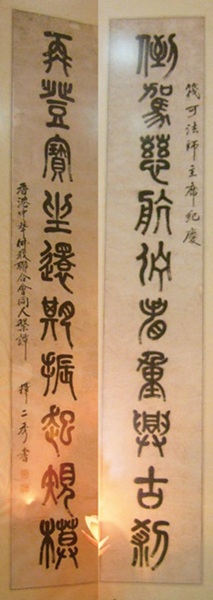 筏可法師主席紀慶
倒駕慈航佇看重興古剎
再登寶坐還期振起規模
香港中華佛教聯合會同人
釋二秀書